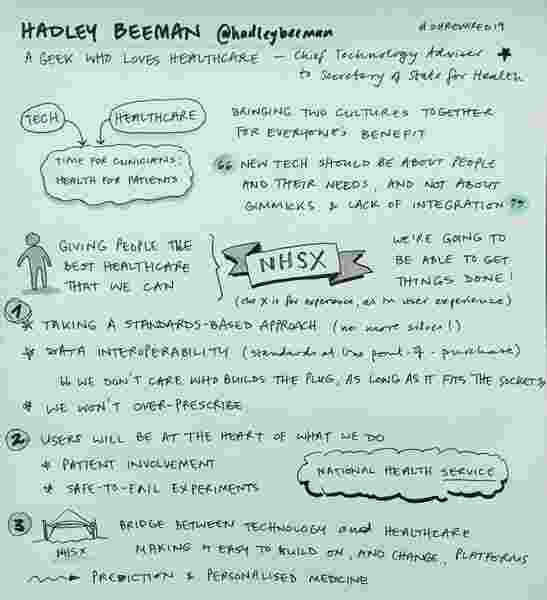 HADLEY BEEMAN @hadleybeeman
#DHREWIRED19
A GEEK WHO LOVES HEALTHCARE — Chief Technology Adviser
to Secretary of State for Health
TECH
HEALTHCARE
TIME FOR CLINICIANS;
HEALTH FOR PATIENTS
BRINGING TWO CULTURES TOGETHER
FOR EVERYONE'S BENEFIT
“ NEW TECH SHOULD BE ABOUT PEOPLE
AND THEIR NEEDS, AND NOT ABOUT
GIMMICKS & LACK OF INTEGRATION ”
GIVING PEOPLE THE
BEST HEALTHCARE
THAT WE CAN
NHSX
(the X is for experience, as in user experience)
WE'RE GOING TO
BE ABLE TO GET
THINGS DONE!
1
* TAKING A STANDARDS-BASED APPROACH (no more silos!)
* DATA INTEROPERABILITY (standards at the point-of-purchase)
“ WE DON'T CARE WHO BUILDS THE PLUG, AS LONG AS IT FITS THE SOCKET ”
* WE WON'T OVER-PRESCRIBE
2 USERS WILL BE AT THE HEART OF WHAT WE DO
* PATIENT INVOLVEMENT
* SAFE-TO-FAIL EXPERIMENTS
NATIONAL HEALTH SERVICE
3
NHSX
BRIDGE BETWEEN TECHNOLOGY and HEALTHCARE
MAKING IT EASY TO BUILD ON, AND CHANGE, PLATFORMS
PREDICTION & PERSONALISED MEDICINE